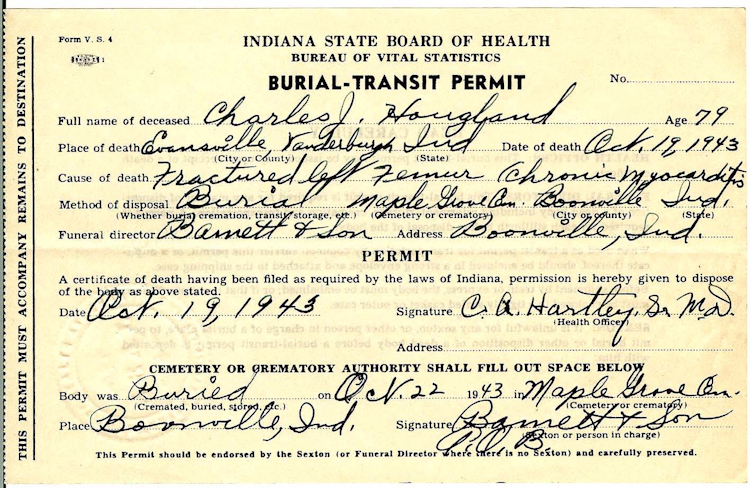 Form V. S. 4
INDIANA STATE BOARD OF HEALTH
BUREAU OF VITAL STATISTICS
BURIAL-TRANSIT PERMIT
No.
Full name of deceased Charles J. Hougland Age 79
Place of death Evansville, Vanderburgh Ind Date of death Oct. 19, 1943
(City or County) (State)
Cause of death Fractured left Femur Chronic Myocarditis
Method of disposal Burial Maple Grove Cem. Boonville Ind.
(Whether burial, cremation, transit, storage, etc.) (Cemetery or crematory) (City or county) (State)
Funeral director Barnett & Son Address Boonville, Ind.
PERMIT
A certificate of death having been filed as required by the laws of Indiana, permission is hereby given to dispose
of the body as above stated.
Date Oct. 19, 1943 Signature C. A. Hartley, Sr. M.D.
(Health Officer)
Address
CEMETERY OR CREMATORY AUTHORITY SHALL FILL OUT SPACE BELOW
Body was Buried on Oct. 22 1943 in Maple Grove Cem.
(Cremated, buried, stored, etc.) (Cemetery or crematory)
Place Boonville, Ind. Signature Barnett & Son
(Sexton or person in charge)
This Permit should be endorsed by the Sexton (or Funeral Director where there is no Sexton) and carefully preserved.
THIS PERMIT MUST ACCOMPANY REMAINS TO DESTINATION